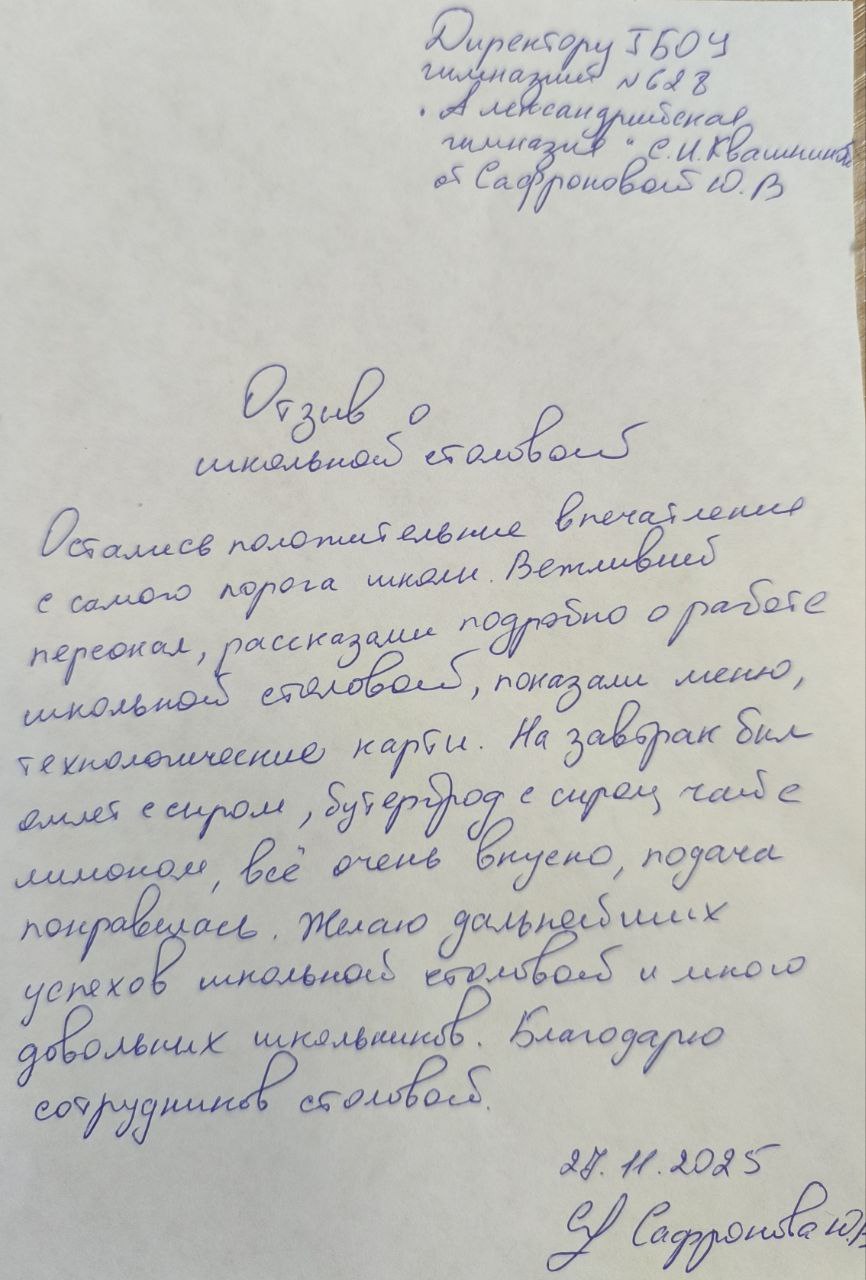 Директору ГБОУ
гимназии №628
"Александрийская
гимназия" С.И.Квашниной
от Сафроновой Ю.В
Отзыв о
школьной столовой
Остались положительные впечатления
с самого порога школы. Вежливый
персонал, рассказали подробно о работе
школьной столовой, показали меню,
технологические карты. На завтрак был
омлет с сыром, бутерброд с сыром, чай с
лимоном, всё очень вкусно, подача
понравилась. Желаю дальнейших
успехов школьной столовой и много
довольных школьников. Благодарю
сотрудников столовой.
27.11.2025
Сафронова Ю.В